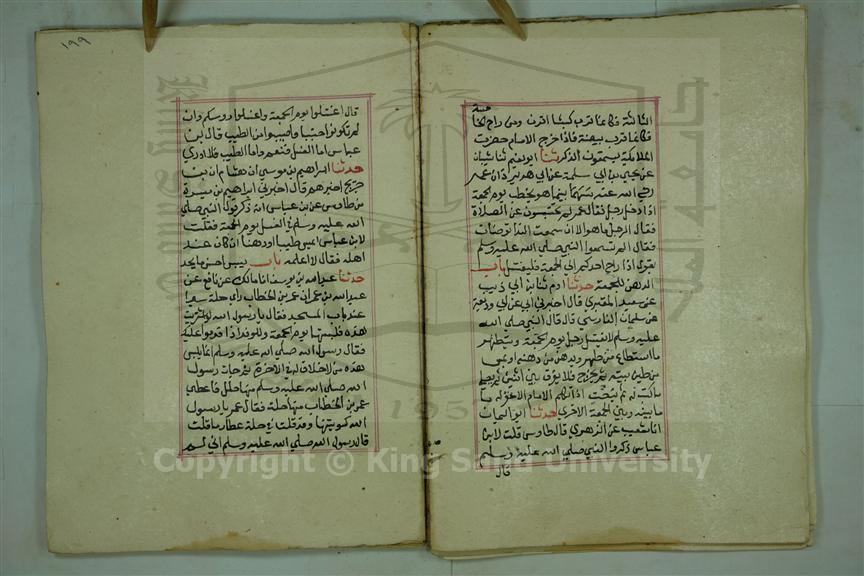 الثالثة فكانما قرب كبشا اقرن ومن راح في الساعة الخا
مسة
فكانما قرب بيضة فاذا خرج الامام حضرت
الملائكة يستمعون الذكر ثنا ابو نعيم ثنا شيبان
عن يحيي بن ابي سلمة عن ابي هريرة ان عمر
رضي الله عنه بينما هو يخطب يوم الجمعة
اذ دخل رجل فقال عمر لم تحتبسون عن الصلاة
فقال الرجل ما هو الا ان سمعت الندا توضات
فقال الم تسمعوا النبي صلي الله عليه وسلم
يقول اذا راح احدكم الي الجمعة فليغتسل باب
الدهن للجمعة حدثنا ادم ثنا بن ابي ذيب
عن سعيد المقبري قال اخبرني ابي عن بن وديعة
عن سلمان الفارسي قال قال النبي صلي الله
عليه وسلم لا يغتسل رجل يوم الجمعة ويتطهر
ما استطاع من طهر ويدهن من دهنه او يمس
من طيب بيته ثم يخرج فلا يفرق بين اثنين ثم يصلي
ما كتب له ثم ينصت اذا تكلم الامام الا غفر له ما
ما بينه وبين الجمعة الاخري حدثنا ابو اليمان
انا شعيب عن الزهري قال طاوس قلت لابن
عباس ذكروا ان النبي صلي الله عليه وسلم
قال
١٩٩
قال اغتسلوا يوم الجمعة واغسلوا روسكم وان
لم تكونوا جنبا واصيبوا من الطيب قال ابن
عباس اما الغسل فنعم واما الطيب فلا ادري
حدثنا ابراهيم بن موسي ان هشام ان بن
جريج اخبرهم قال اخبرني ابراهيم بن ميسرة
عن طاوس عن بن عباس انه ذكر قول النبي صلي
الله عليه وسلم في الغسل يوم الجمعة فقلت
لابن عباس ايمس طيبا او دهنا ان كان عند
اهله فقال لا اعلمه باب يلبس احسن ما يجد
حدثنا عبد الله بن يوسف انا مالك عن نافع عن
عبد الله بن عمر ان عمر بن الخطاب راي حلة سيرا
عند باب المسجد فقال يا رسول الله لو اشتريت
هذه فلبستها يوم الجمعة وللوفد اذا قدموا عليك
فقال رسول الله صلي الله عليه وسلم انما يلبس
هذه من لا خلاق له في الاخرة ثم جات رسول
الله صلي الله عليه وسلم منها حلل فاعطي
عمر بن الخطاب منها حلة فقال عمر يا رسول
الله كسوتنيها وقد قلت في حلة عطارد ما قلت
قال رسول الله صلي الله عليه وسلم اني لم
Copyright © King Saud University
1957